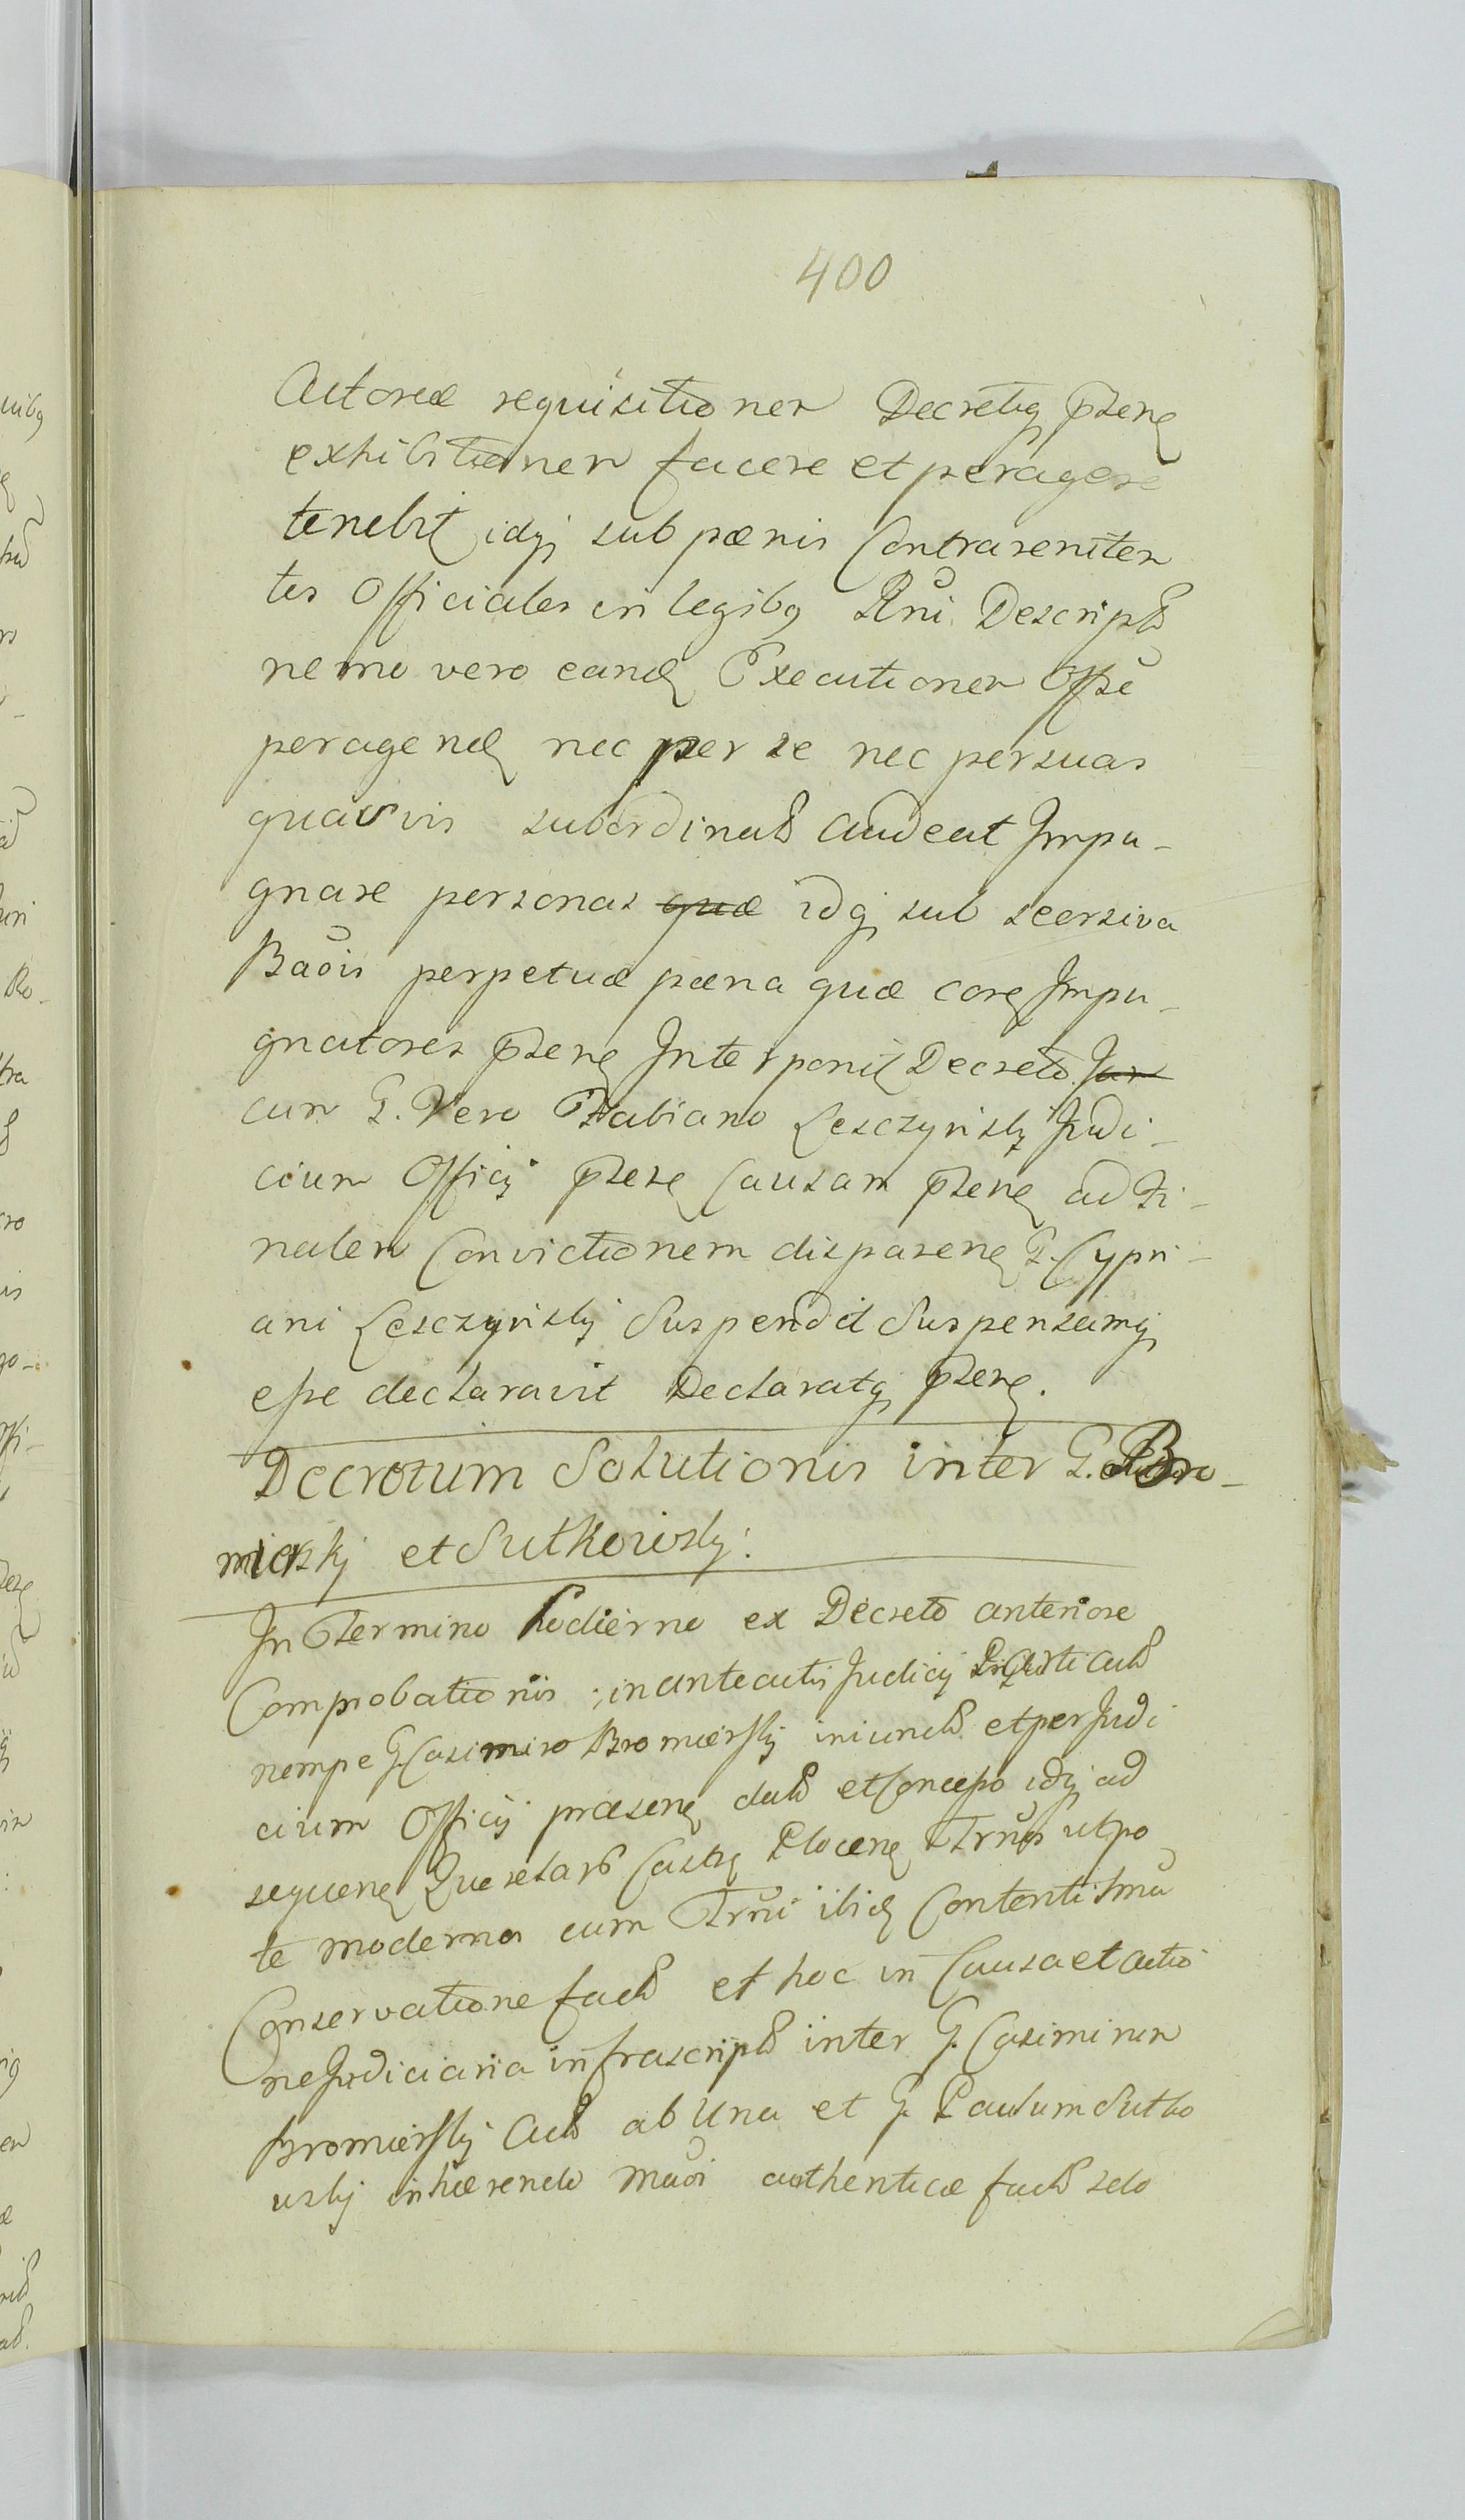 400
Actoreæ requisitionem Decretiq prens
exhibitionem facere et peragere
tenebit idq sub pænis Contraveniten
tes Officiales in legibg Rni Descriptis
nemo vero eand Executionem Offsē
peragend nec per se nec per suas
quasvis subordinatas audeat Impu-
gnare personas quæ idq sub seorsiva
Baōis perpetuæ pæna quæ cora Impu-
gnatores prens Interponit Decreto Jure
cum G. Vero Fabiano Leszczynsky Judi-
cium Officij prese Causam prens ad Fi-
nalem Convictionem disparens G. Cypri-
ani Leszczynskij Suspendit Suspensamq
esse declaravit Declaratq prens.
Decretum Solutionis inter G. Bro-
mierskij et Sutkowsky:
In Termino hodierno ex Decreto anteriore
Comprobationis in anteactis Judicij
nempe G. Casimiro Bromierskij iniunctis et per Judi
cium Officij præsens datis et Concesso idq ad
sequens Querelas Castrs Plocens Trnis utpo
te moderna cum Trni ibid
Conservatione factis et hoc in Causa et Actio
ne Judiciaria infrascriptis inter G. Casimirum
Bromierskij Actis ab Una et G. Paulum Sutko
uskij inhærendo Maōi authenticæ factis seto